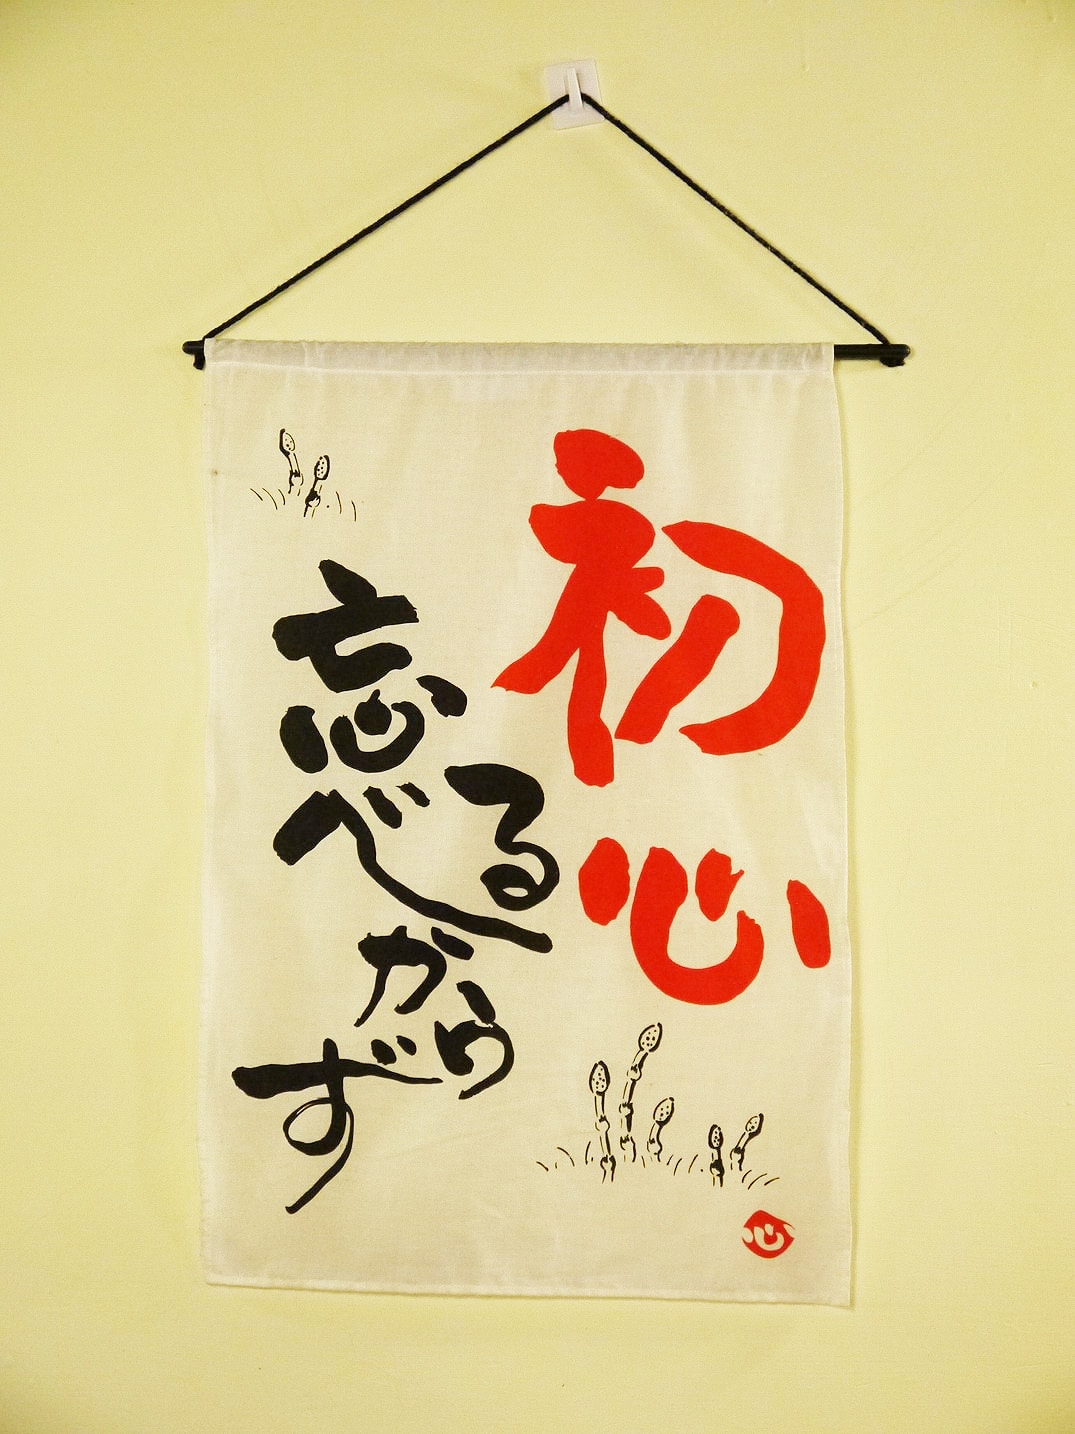 初心
忘るべからず
心